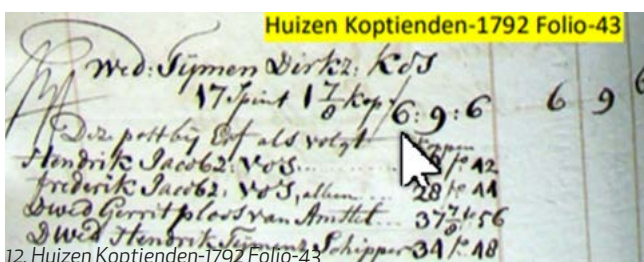 Huizen Koptienden-1792 Folio-43
Wed: Tijmen Dirkz: Kos
17 Spint 1 7/8 Kop / 6:9:6 6 9 6
Deze post bij Erf als volgt
Koppen
Hendrik Jacobz: Vos f° 42
frederik Jacobz: Vos, allum 28 f° 44
Dwed Gerrit ploos van Amstel 37 7/8 f° 56
D Wed Hendrik Tijmenz Schipper 34 f° 48
12. Huizen Koptienden-1792 Folio-43